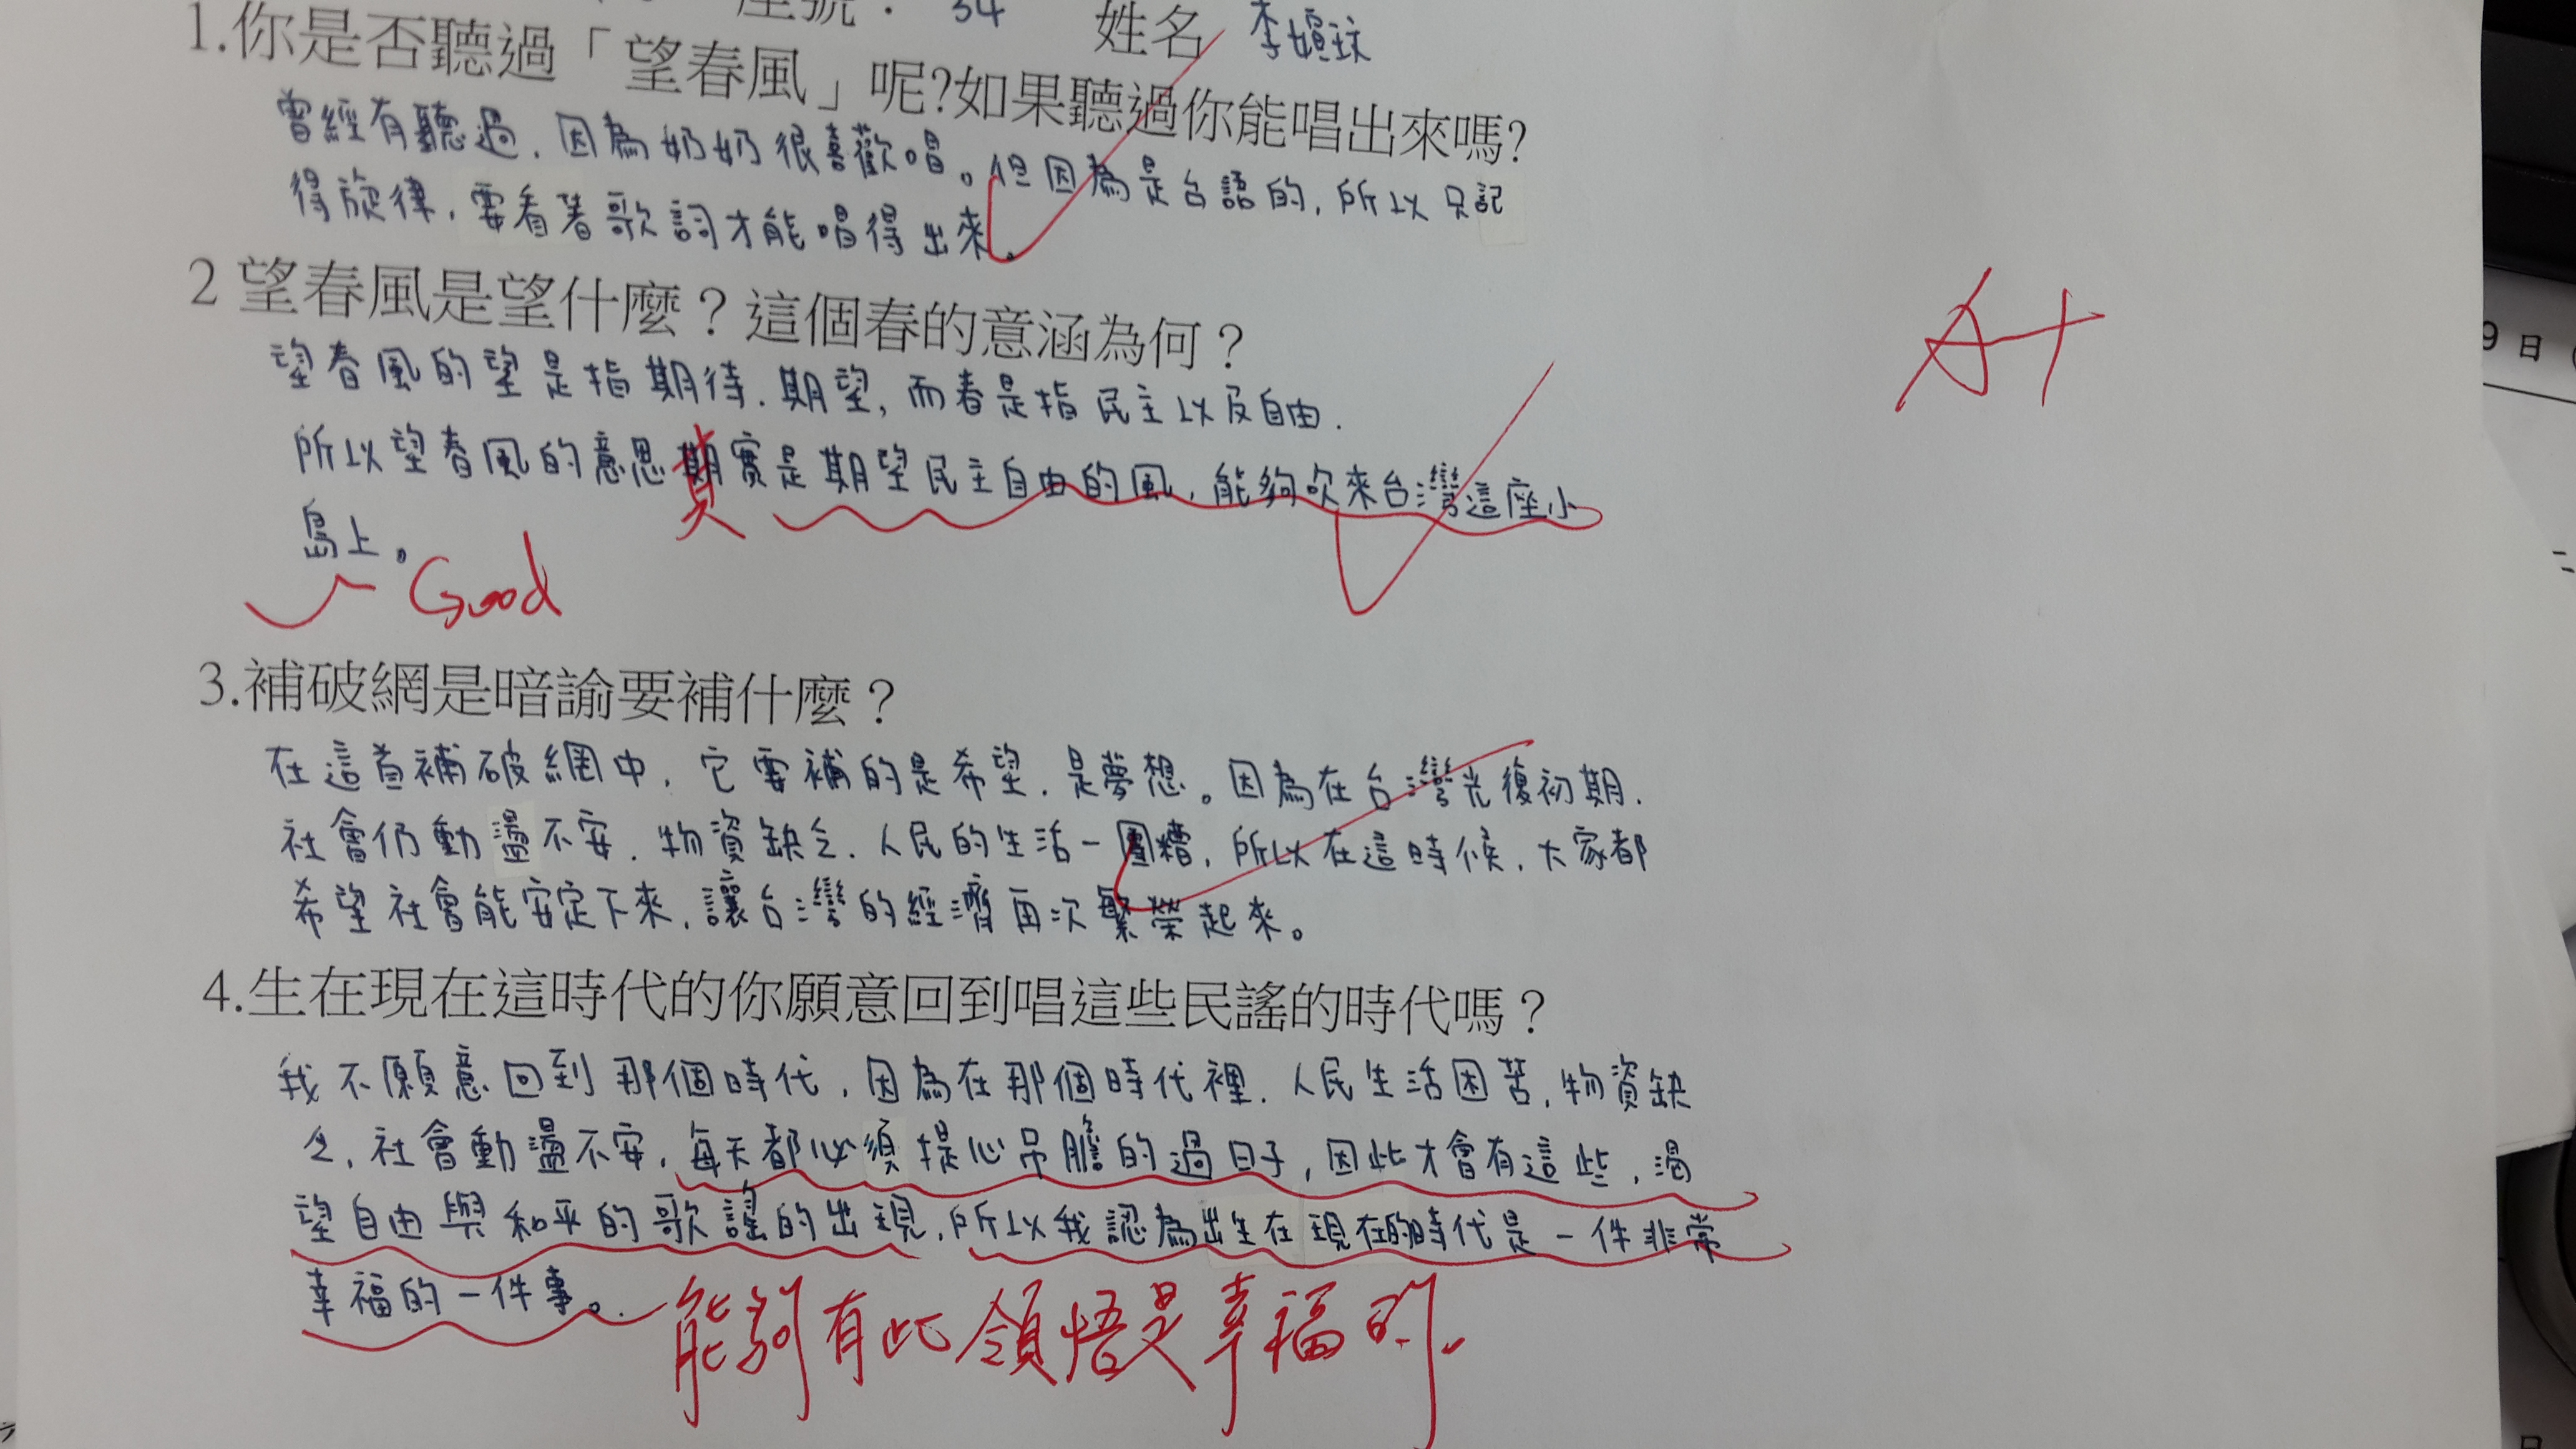 座號： 34 姓名 李媗玟
1.你是否聽過「望春風」呢?如果聽過你能唱出來嗎?
曾經有聽過，因為奶奶很喜歡唱。但因為是台語的，所以只記
得旋律，要看著歌詞才能唱得出來。
2 望春風是望什麼？這個春的意涵為何？
望春風的望是指期待、期望，而春是指民主以及自由，
所以望春風的意思期實是期望民主自由的風，能夠吹來台灣這座小
其
島上。
Good
A+
3.補破網是暗諭要補什麼？
在這首補破網中，它要補的是希望、是夢想。因為在台灣光復初期，
社會仍動盪不安，物資缺乏，人民的生活一團糟，所以在這時候，大家都
希望社會能安定下來，讓台灣的經濟再次繁榮起來。
4.生在現在這時代的你願意回到唱這些民謠的時代嗎？
我不願意回到那個時代，因為在那個時代裡，人民生活困苦，物資缺
乏，社會動盪不安，每天都必須提心吊膽的過日子，因此才會有這些，渴
望自由與和平的歌謠的出現，所以我認為出生在現在的時代是一件非常
幸福的一件事。
能夠有此領悟是幸福的。
9 日